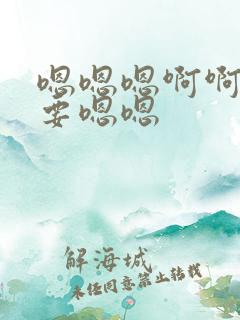 嗯嗯嗯啊啊
要嗯嗯
解海城
未经同意禁止转载